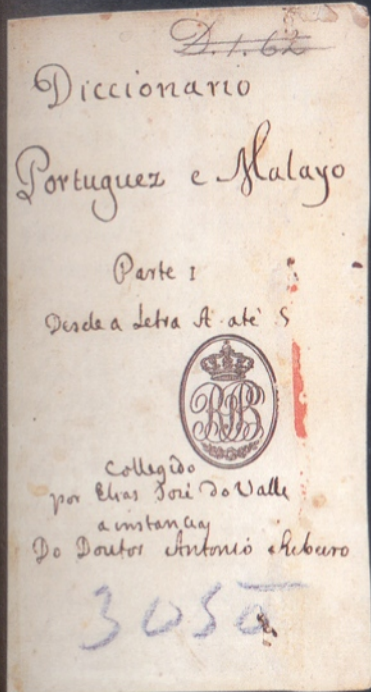 D.1.62
Diccionario
Portuguez e Malayo
Parte 1
Desde a Letra A até S
Collegido
por Elias José do Valle
a instancia
Do Doutor Antonio Ribeiro